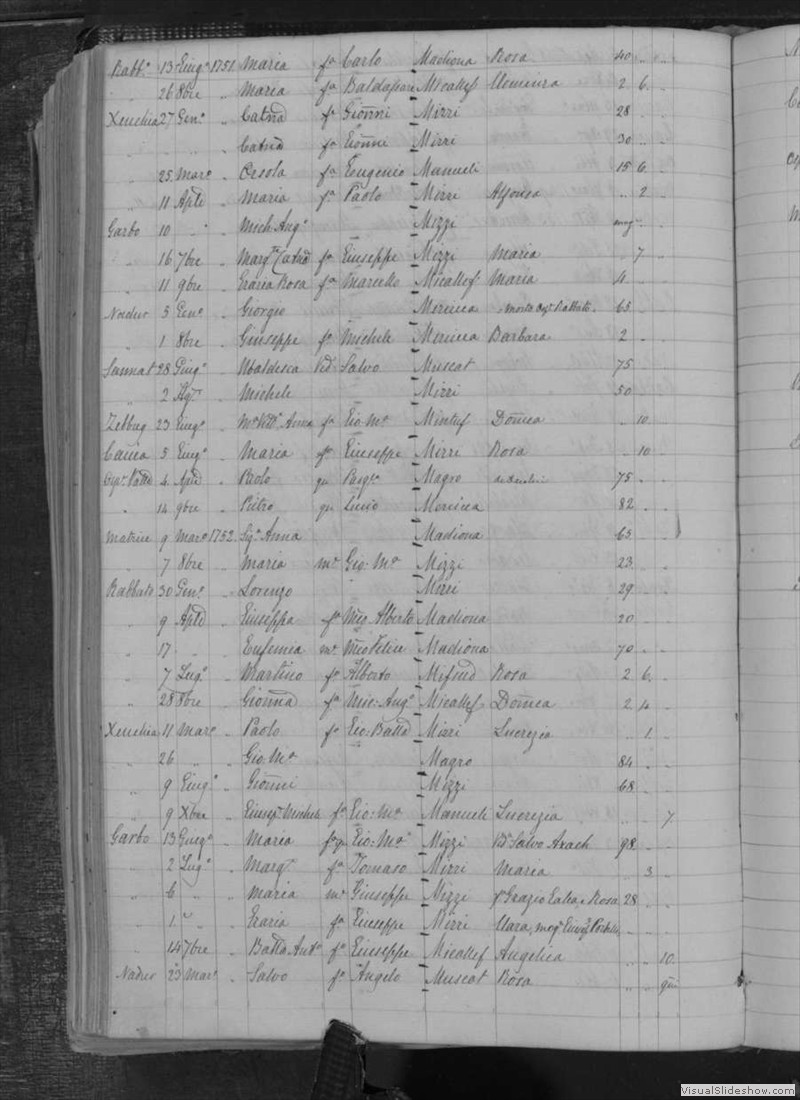 Rabb.o 13 Giug.o 1751 Maria fa Carlo Madiona Rosa 40 " "
" 26 8bre " Maria fa Baldassare Micallef Clemenza 2 6 "
Xeuchia 27 Gen.o " Catna fa Gionni Mizzi 28 " "
" " " " Catna fa Gionni Mizzi 30 " "
" 25 Marzo " Orsola fa Eugenio Manueli 15 6 "
" 11 Aple " Maria fa Paolo Mizzi Alfonsa " 2 "
Garbo 10 " " Mich Ang.o Mizzi
" 16 7bre " Marg.ta Catna fa Giuseppe Mizzi Maria " 7 "
" 11 9bre " Grazia Rosa fa Marcello Micallef Maria 4 " "
Nadur 5 Gen.o " Giorgio Mercieca morto Rabbato 65 " "
" 1 8bre " Giuseppe fo Michele Mercieca Barbara 2 " "
Sannat 28 Giug.o " Ubaldesca Vid Salvo Muscat 75 " "
" 2 Ag.to " Michele Mizzi 50 " "
Zebbug 23 Giug.o " Anna fa Gio Ma Mintuf Domca " 10 "
Caccia 5 Giug.o " Maria fa Giuseppe Mizzi Rosa " 10 "
4 Aple " Paolo qu Pasq.le Magro 75 " "
" 14 9bre " Pietro qu Mercieca 82 " "
Matrice 9 Marzo 1752 Sig.a Anna Madiona 65 " "
" 7 8bre " Maria me Gio: Ma Mizzi 23 " "
Rabbato 30 Gen.o " Lorenzo " Mizzi 29 " "
" 9 Aple " Giuseppa fa Alberto Madiona 20 " "
" 17 " " Eufemia me Felice Madiona 70 " "
" 7 Lug.o " Martino fo Alberto Mifsud Rosa 2 6 "
" 28 8bre " Gionna fa Mic: Ang.o Micallef Domca 2 4 "
Xeuchia 11 Marzo " Paolo fo Gio: Batta Mizzi Lucrezia " 1 "
" 26 " " Gio: Ma Magro 84 " "
" 9 Giug.o " Gionni Mizzi 68 " "
" 9 Xbre " Giusep.e Michele fo Gio: Ma Manueli Lucrezia " " 7
Garbo 13 Giug.o " Maria Gio: Ma Mizzi Salvo Axach 98 " "
" 2 Lug.o " Marg.ta fa Tomaso Mizzi Maria " 3 "
" 6 " " Maria me Giuseppe Mizzi fa Grazio Galea e Rosa 28 " "
" 1 " " Grazia fa Giuseppe Mizzi Clara
" 14 7bre " Batta Ant.o fo Giuseppe Micallef Angelica " " 10
Nadur 23 Marzo " Salvo fo Angelo Muscat Rosa " "
VisualSlideshow.com